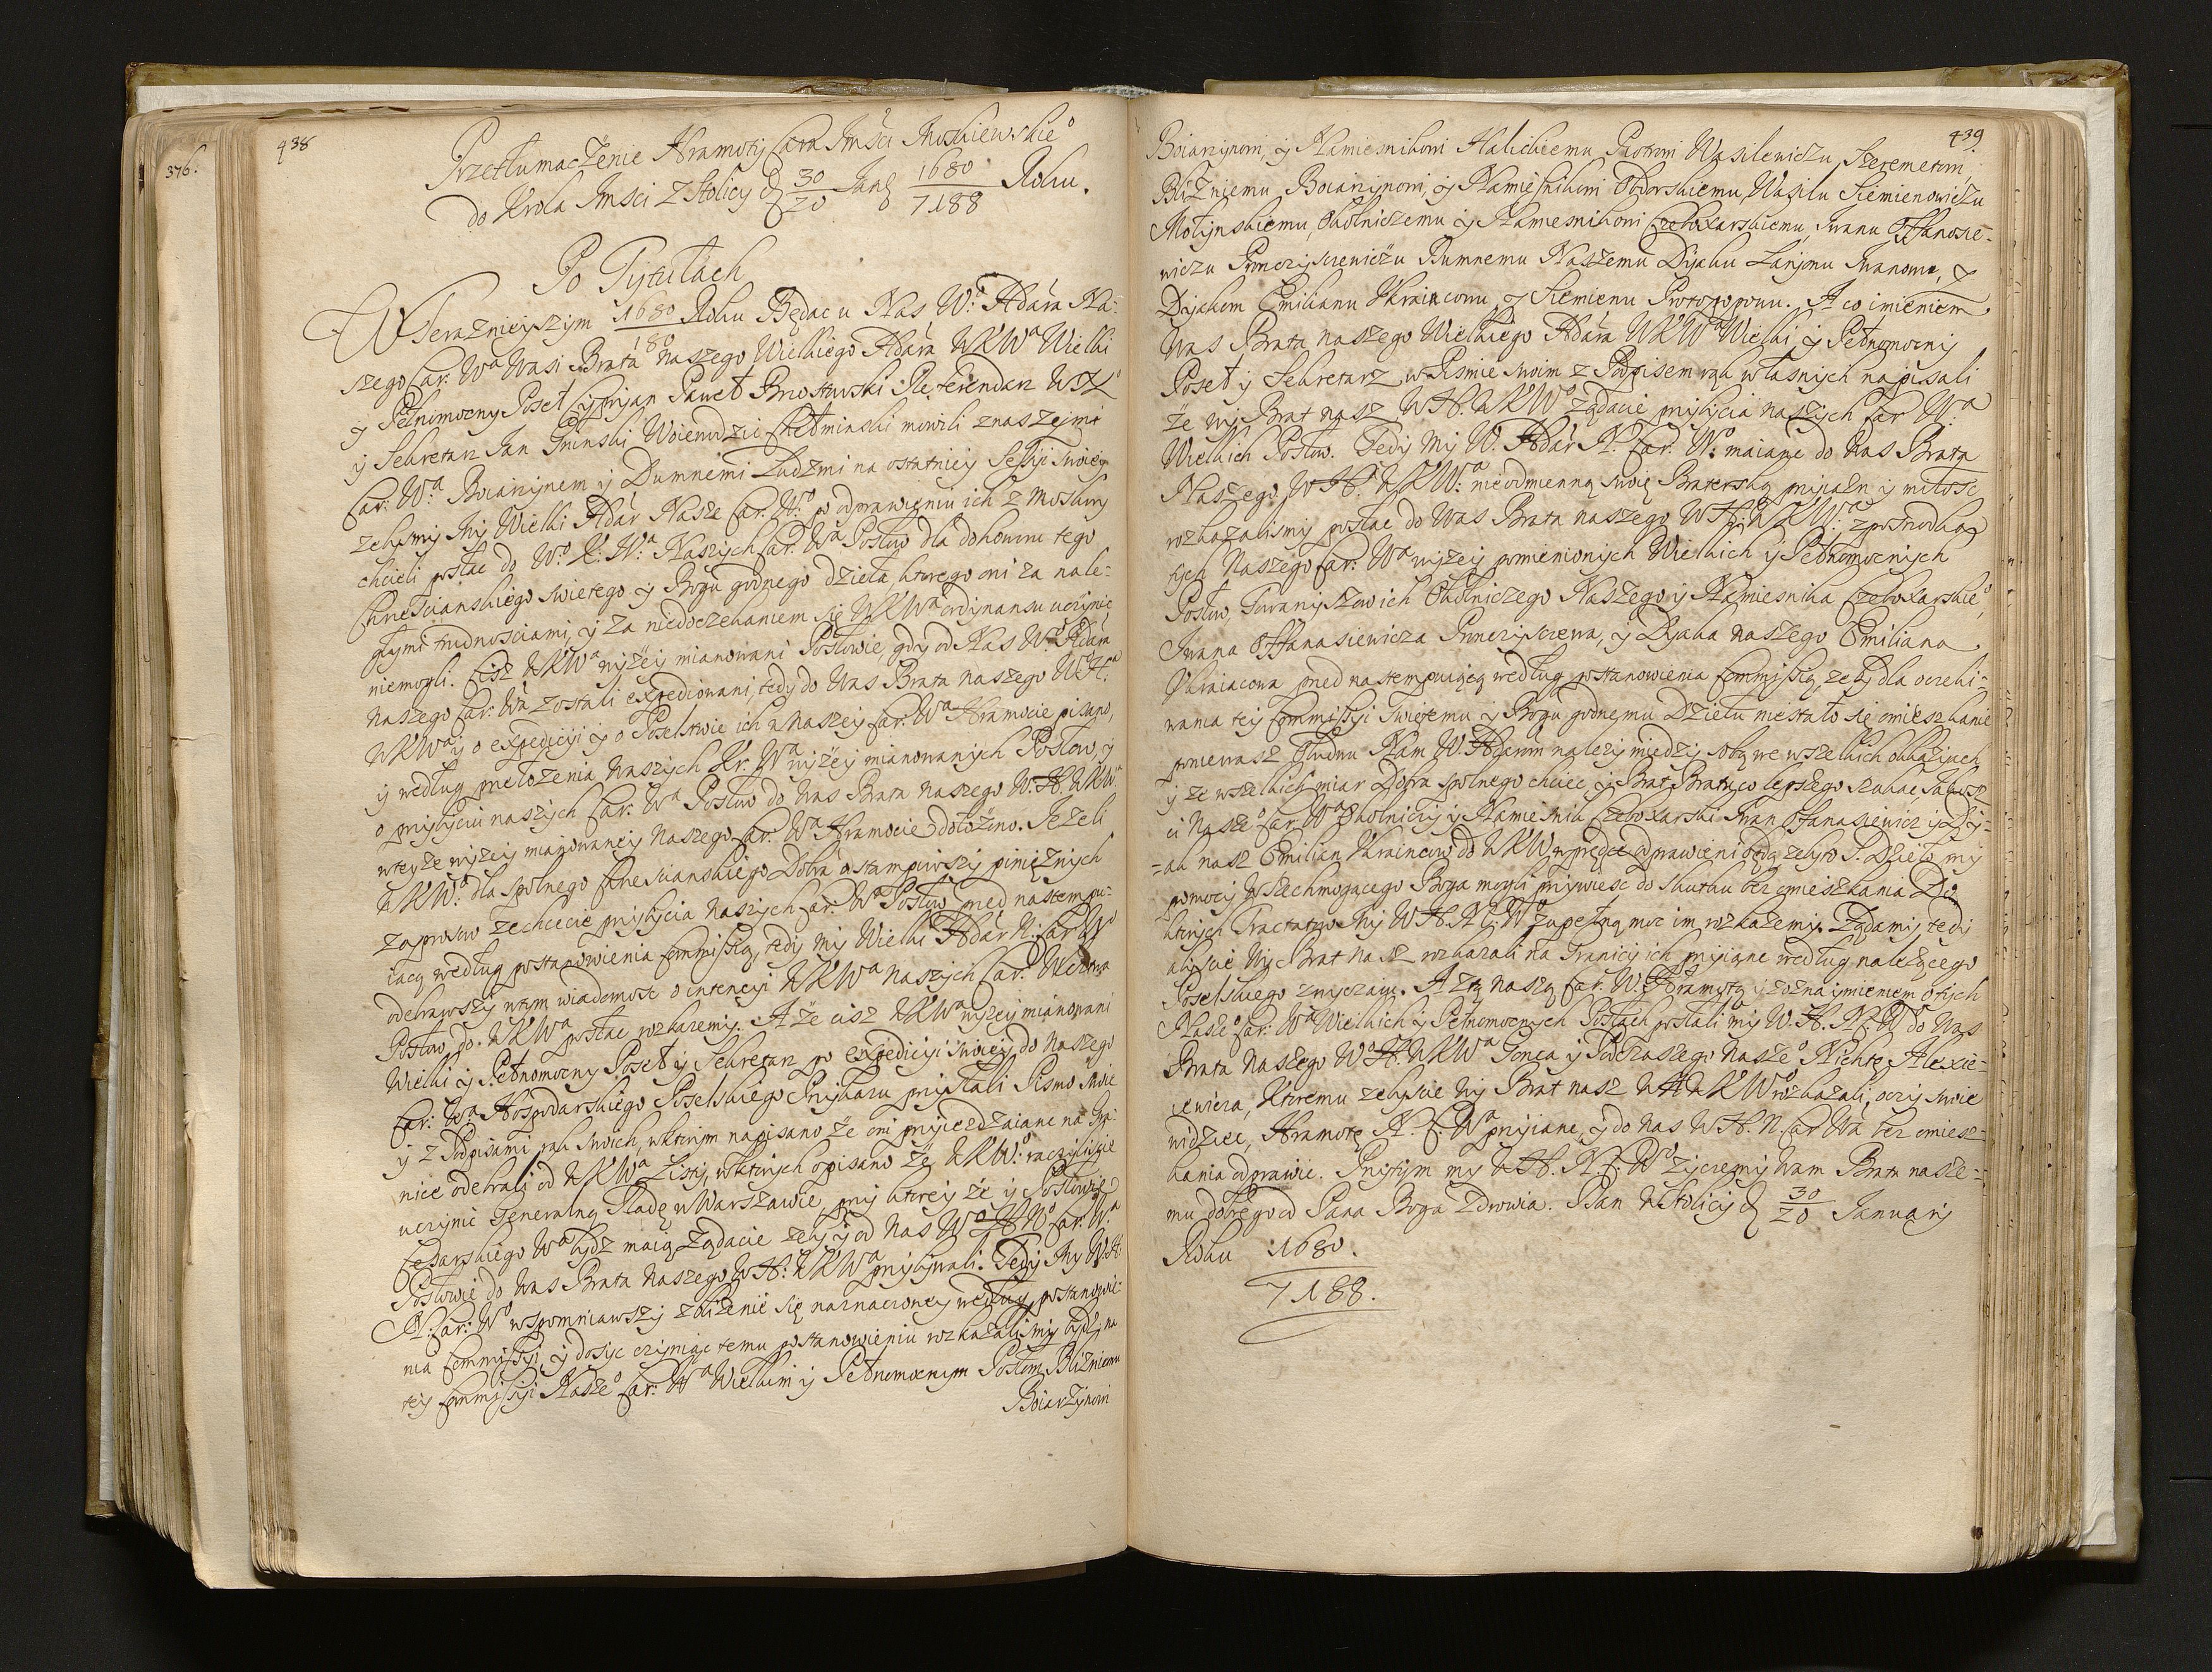 376.
438
Przetłumaczenie Hramoty Cara Jmści Moskiewskieo
do Krola Jmsci z Stolicy d 30/20 Jan 1680/7188 Roku.
Po Tytułach
W Teraznieyszym 1680/180 Roku Będąc u Nas Wo Hdara Na-
szego Car: Wa Wasi Brata naszego Wielkiego Hdara WKWa Wielki
y Pełnomocny Poseł Cyprjan Paweł Brzostowski Referendarz WXL
y Sekretarz Jan Gninski Woiewodzic Chełminski mowili znaszejmi
Car: Wa Boiarzynem y Dumnemi Ludzmi na ostatniey Sessyi swoiey
zebysmy My Wielki Hdar Nasze Car: Wo po odprawieniu ich z Moskwy
chcieli posłac do Wo K: Wa Naszych Car: Wa Posłow dla dokonania tego
Chrzescianskiego swietego y Bogu godnego dzieła, ktorego oni za nale-
głymi trudnosciami, y za niedoczekaniem się WKWa ordynansu uczynic
niemogli. Cisz WKWa wyżey mianowani Posłowie, gdy od Nas Wo Hdara
Naszego Car: Wa zostali expediowani, tedy do Was Brata naszego WoHa
WKWa y o expedicyi y o Poselstwie ich w naszey Car: Wa Hramocie pisano,
y według przełożenia Naszych Kr. Wa wyżey mianowanych Posłow, y
o przybyciu naszych Car: Wa Posłow do Was Brata Naszego W: H: WKWa
wteyże wyżey mianowaney Naszego Car: Wa Hramocie dołożono. Jeżeli
WKWo dla spolnego Chrescianskiego Dobra
zechcecie przybycia naszych Car: Wa Posłow przed nastempu-
iącą według postanowienia Commissią, tedy my Wielki Hdar N: Car Wo
odebrawszy wtym wiadomosc o intencyi WKWa naszych Car:
Posłow do WKWa posłac rozkazemy. A że cisz WKWa wyżey mianowani
Wielki y Pełnomocny Poseł y Sekretarz po expedicyi swoiey do Naszego
Car: Wa Hospodarskiego Poselskiego Prykazu przysłali Pismo swoie
y z Podpisami rąk swoich, w ktorym napisano że oni przyiezdzaiąc na Gra-
nice odebrali od WKWa Listy, w ktorych opisano że WKWo raczyliscie
uczynic Generalną Radę w Warszawie, przy ktorey że y Posłowie
Cesarskiego Wa bydz maią, Ządacie zeby y od Nas Wo H Wo Car: Wa
Posłowie do Was Brata Naszego W H: WKWa przybywali. Tedy My W: H:
N: Car: Wo wspomniawszy zbliżenie się naznaczoney według postanowie-
nia Commissyi, y dosyc czyniąc temu postanowieniu rozkazalismy bydz na
tey Commissyi Naszeo Car: Wa Wielkim y Pełnomocnym Posłom, Bliżniemu
Boiarżynowi
439
Boiarzynowi, y Namiesnikowi Halickiemu Piotrowi Wasilewiczu Szeremetowi,
Bliżniemu Boiarzynowi, y Namiesnikowi Obdorskiemu, Wasilu Siemienowiczu
Wołynskiemu, Okolniczemu y Namiesnikowi Czeboxarskiemu, Iwanu Offanasie-
wiczu Pronczyscewiczu Dumnemu Naszemu Dyaku Laryonu Iwanowu, y
Dyakom Emilianu Ukraincowu, y Siemienu Protopopowu. A co imieniem
Was Brata naszego Wielkiego Hdara WKWa Wielki, y Pełnomocny
Poseł y Sekretarz w Pismie swoim z Podpisem rąk własnych napisali
że wy Brat nasz WH. WKWo żądacie przybycia naszych Car Wa
Wielkich Posłow. Tedy My W. Hdar N. Car: Wo maiąc do Was Brata
Naszego W H. WKWa nieodmienną swoię Braterską przyiazn y miłosc
rozkazalismy posłac do Was Brata naszego W H: WKWa zposrodka
tych Naszego Car: Wa wyżey pomienionych Wielkich y Pełnomocnych
Posłow, Towarzyszow ich Okolniczego Naszego y Namiesnika Czeboxarskieo,
Iwana Offanasiewicza Pronczyscewa, y Dyaka naszego Emiliana
Ukraincowa przed nastempuiącą według postanowienia Commissią, zeby dla oczeki-
wania tey Commissyi Swiętemu y Bogu godnemu Dziełu niestało się omieszkanie
poniewasz Nam W. Hdarom należy między sobą we wszelkich okkazyach
y ze wszelkich miar Dobra spolnego chciec y Brat Bratu co lepszego szukac
ci Naszeo Car Wa Okolniczy y Namiesnik Czeboxarski Iwan Offanasiewicz y Dy-
-ak nasz Emilian Ukraincow do WKW wprędce odprawieni będą zeby to S. Dzieło przy
pomocy Wszechmogącego Boga mogli przywiesc do skutku bez omieszkania. Do
ktorych Tractatow My W H. N. C. Wo zupełną moc im rozkażemy. Ządamy tedy
abyscie Wy Brat Nasz rozkazali na Granicy ich przyiąc według należącego
Poselskiego zwyczaiu. A z tą naszą Car: W. Hramotą y oznaymieniem o tych
Naszeo Car: Wa Wielkich y Pełnomocnych Posłach posłali my W. H. N. C. W do Was
Brata Naszego Wo H. WKWa Gonca y Podczaszego Naszeo Nikitę Alexie-
iewicza, Ktoremu zebyscie Wy Brat nasz W H WKWo rozkazali, oczy swoie
widziec, Hramotę N. C. Wa przyiąc, y do Nas W H. N. Car Wa bez omiesz-
kania odprawic. Przytym my W H. N. C. Wo życzemy Wam Bratu nasze-
mu dobrego od Pana Boga Zdrowia. Pisan w Stolicy d 30/20 January
Roku 1680.
7188.